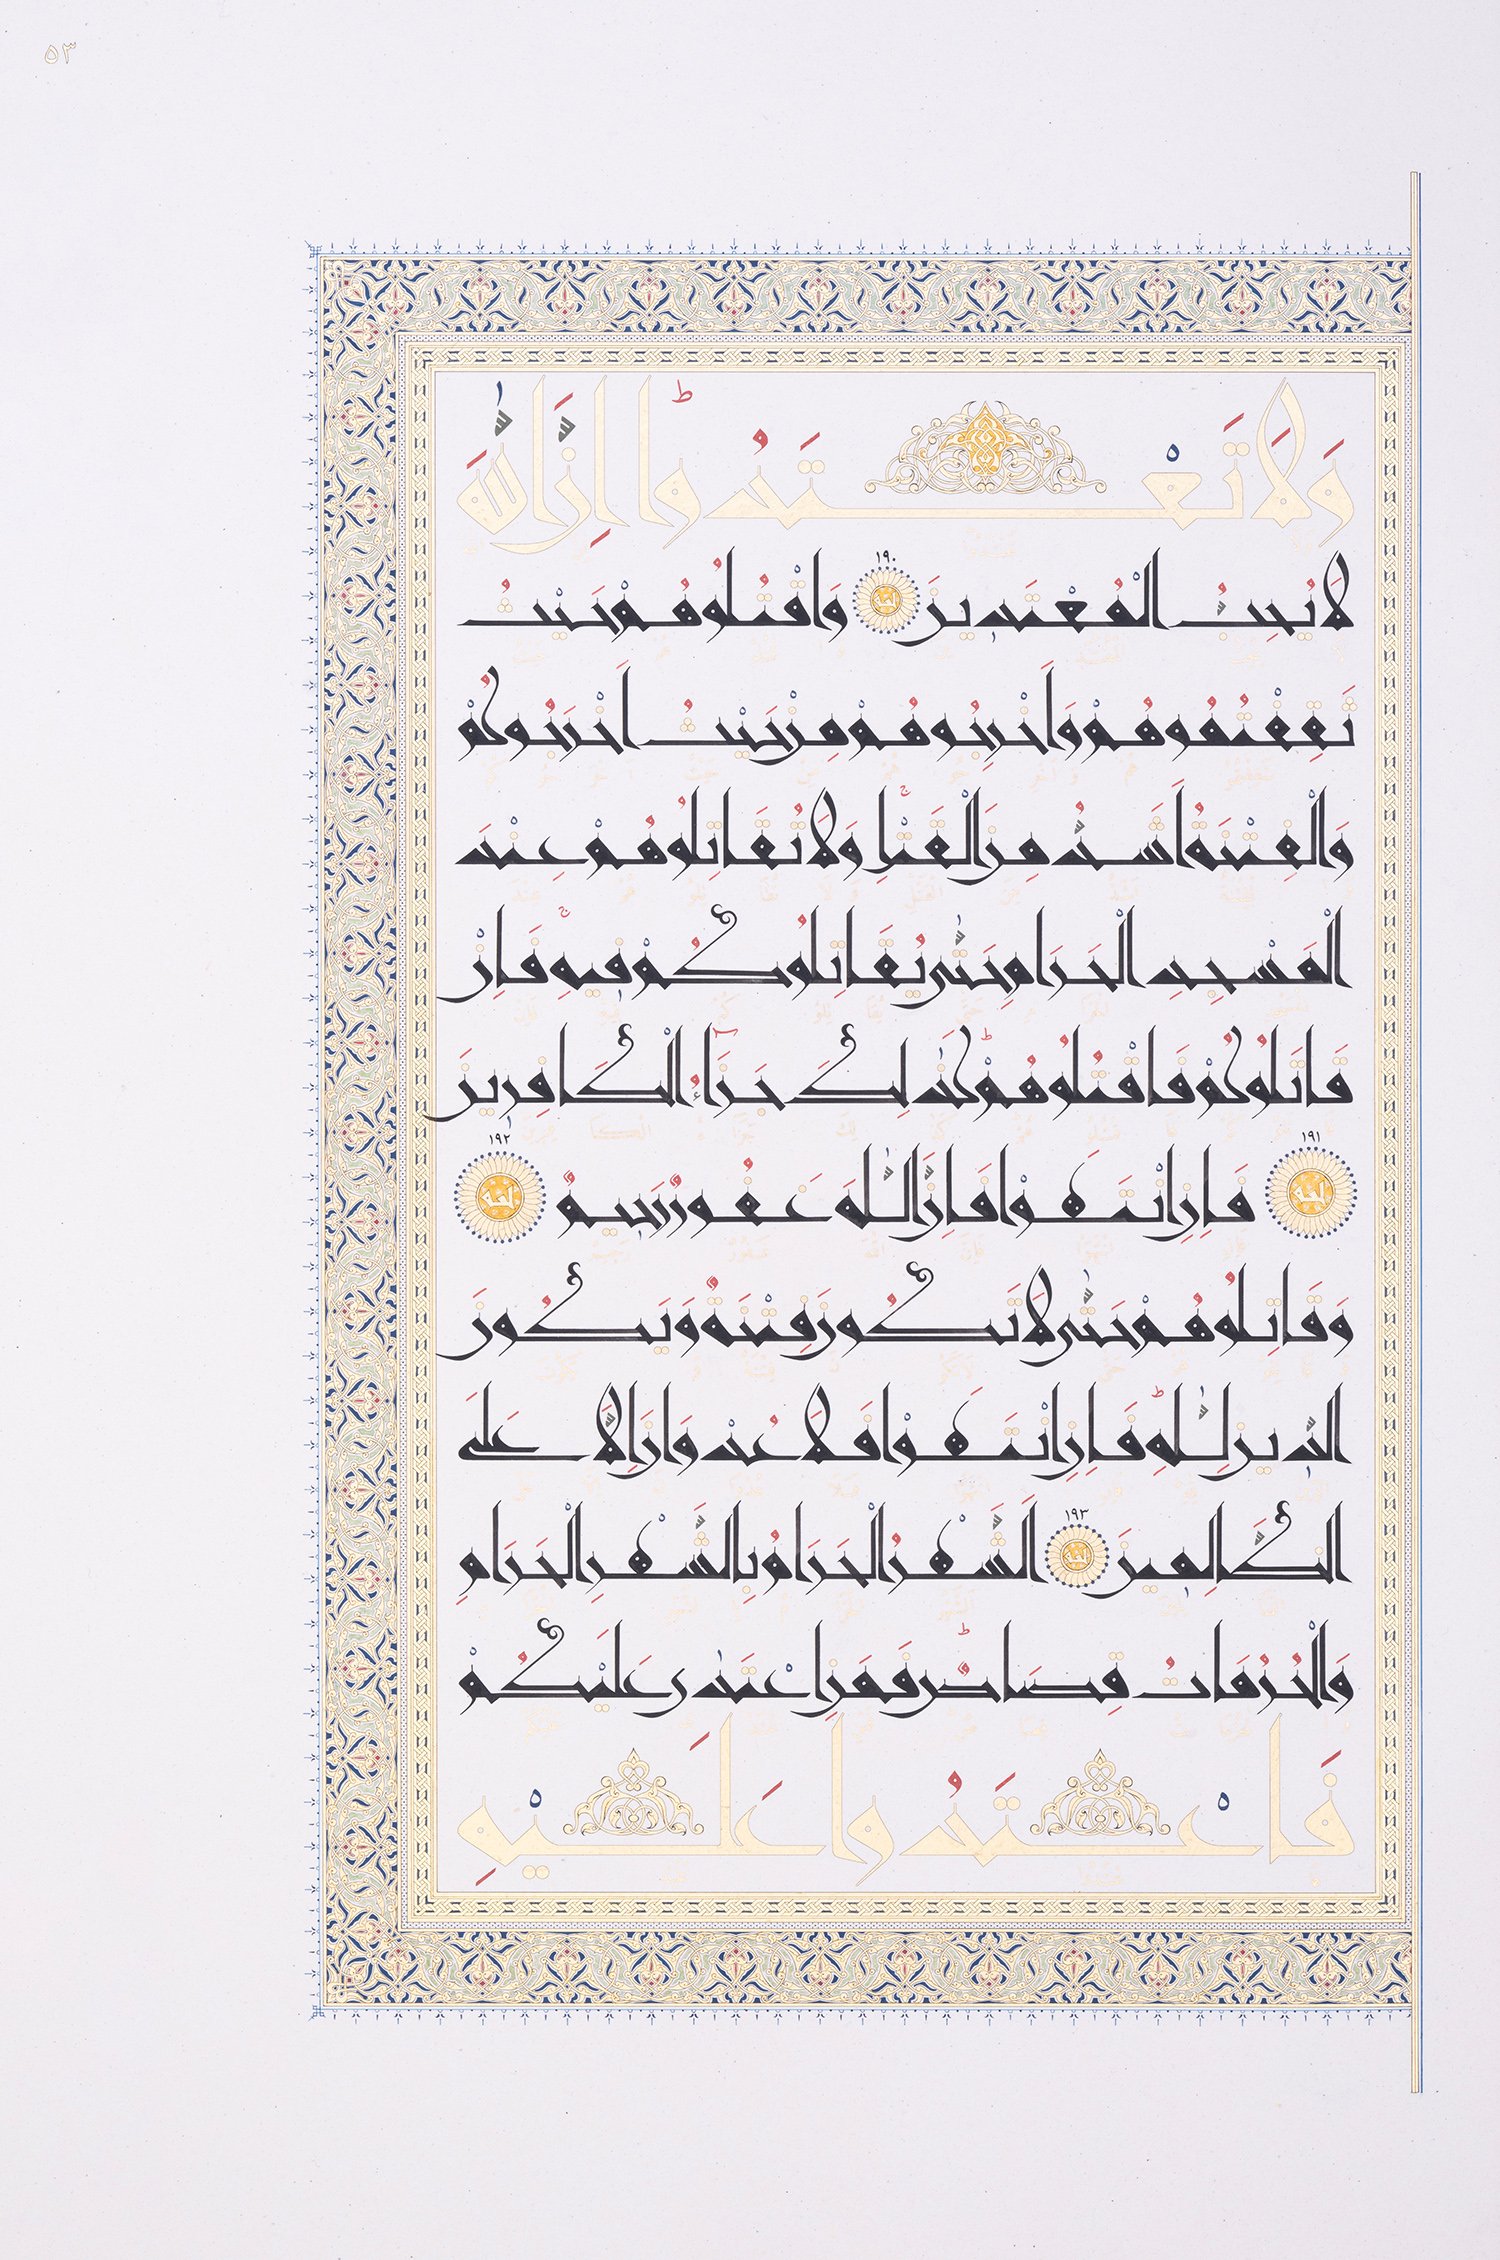 ۵۳
وَلَا تَعْتَدُوا ۚ إِنَّ اللَّهَ
لَا يُحِبُّ الْمُعْتَدِينَ ١٩٠ وَاقْتُلُوهُمْ حَيْثُ
ثَقِفْتُمُوهُمْ وَأَخْرِجُوهُمْ مِنْ حَيْثُ أَخْرَجُوكُمْ
وَالْفِتْنَةُ أَشَدُّ مِنَ الْقَتْلِ ۚ وَلَا تُقَاتِلُوهُمْ عِنْدَ
الْمَسْجِدِ الْحَرَامِ حَتَّىٰ يُقَاتِلُوكُمْ فِيهِ ۖ فَإِنْ
قَاتَلُوكُمْ فَاقْتُلُوهُمْ ۗ كَذَٰلِكَ جَزَاءُ الْكَافِرِينَ
١٩١ فَإِنِ انْتَهَوْا فَإِنَّ اللَّهَ غَفُورٌ رَحِيمٌ ١٩٢
وَقَاتِلُوهُمْ حَتَّىٰ لَا تَكُونَ فِتْنَةٌ وَيَكُونَ
الدِّينُ لِلَّهِ ۖ فَإِنِ انْتَهَوْا فَلَا عُدْوَانَ إِلَّا عَلَى
الظَّالِمِينَ ١٩٣ الشَّهْرُ الْحَرَامُ بِالشَّهْرِ الْحَرَامِ
وَالْحُرُمَاتُ قِصَاصٌ ۚ فَمَنِ اعْتَدَىٰ عَلَيْكُمْ
فَاعْتَدُوا عَلَيْهِ